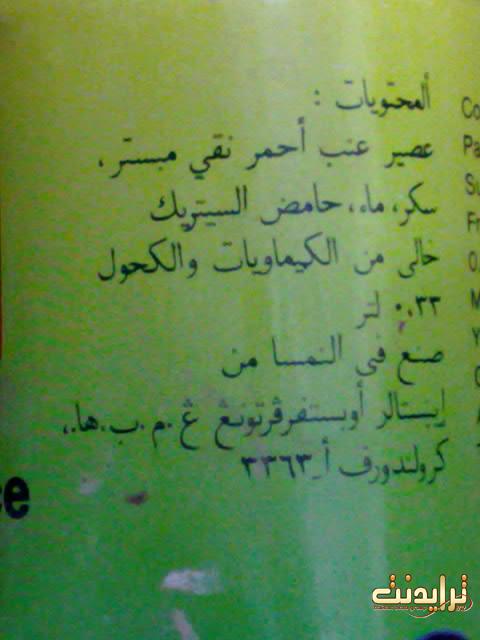 ألمحتويات :
عصير عنب أحمر نقي مبستر،
سكر، ماء، حامض السيتريك
خالي من الكيماويات والكحول
٠،٣٣ لتر
صنع في النمسا من
إيبستالر أوبستفرڤرتونڠ ڠ.م.ب.ها.،
كرولندورف أ_٣٣٦٣
Co
Pa
Su
Fr
0,
M
Y
ce
ترايدنت